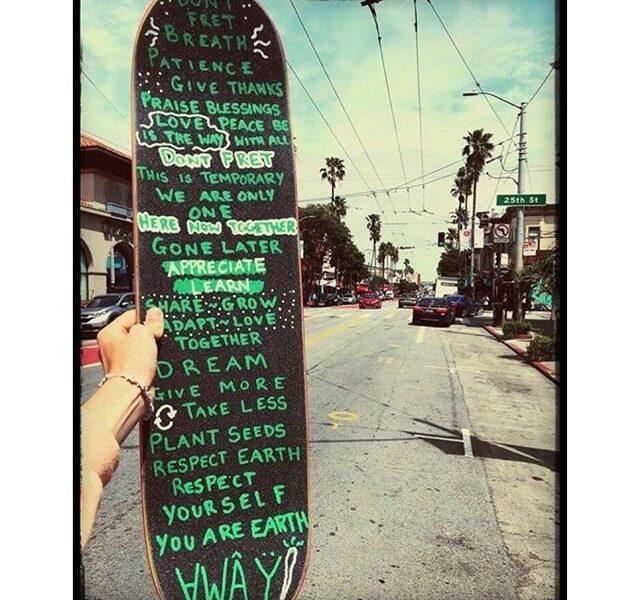 DON'T
FRET
BREATH
PATIENCE
GIVE THANKS
PRAISE BLESSINGS
LOVE PEACE BE
IS THE WAY WITH ALL
DON'T FRET
THIS IS TEMPORARY
WE ARE ONLY
ONE
HERE NOW TOGETHER
GONE LATER
APPRECIATE
LEARN
SHARE~GROW
ADAPT~LOVE
TOGETHER
DREAM
GIVE MORE
TAKE LESS
PLANT SEEDS
RESPECT EARTH
RESPECT
YOURSELF
YOU ARE EARTH
25th St